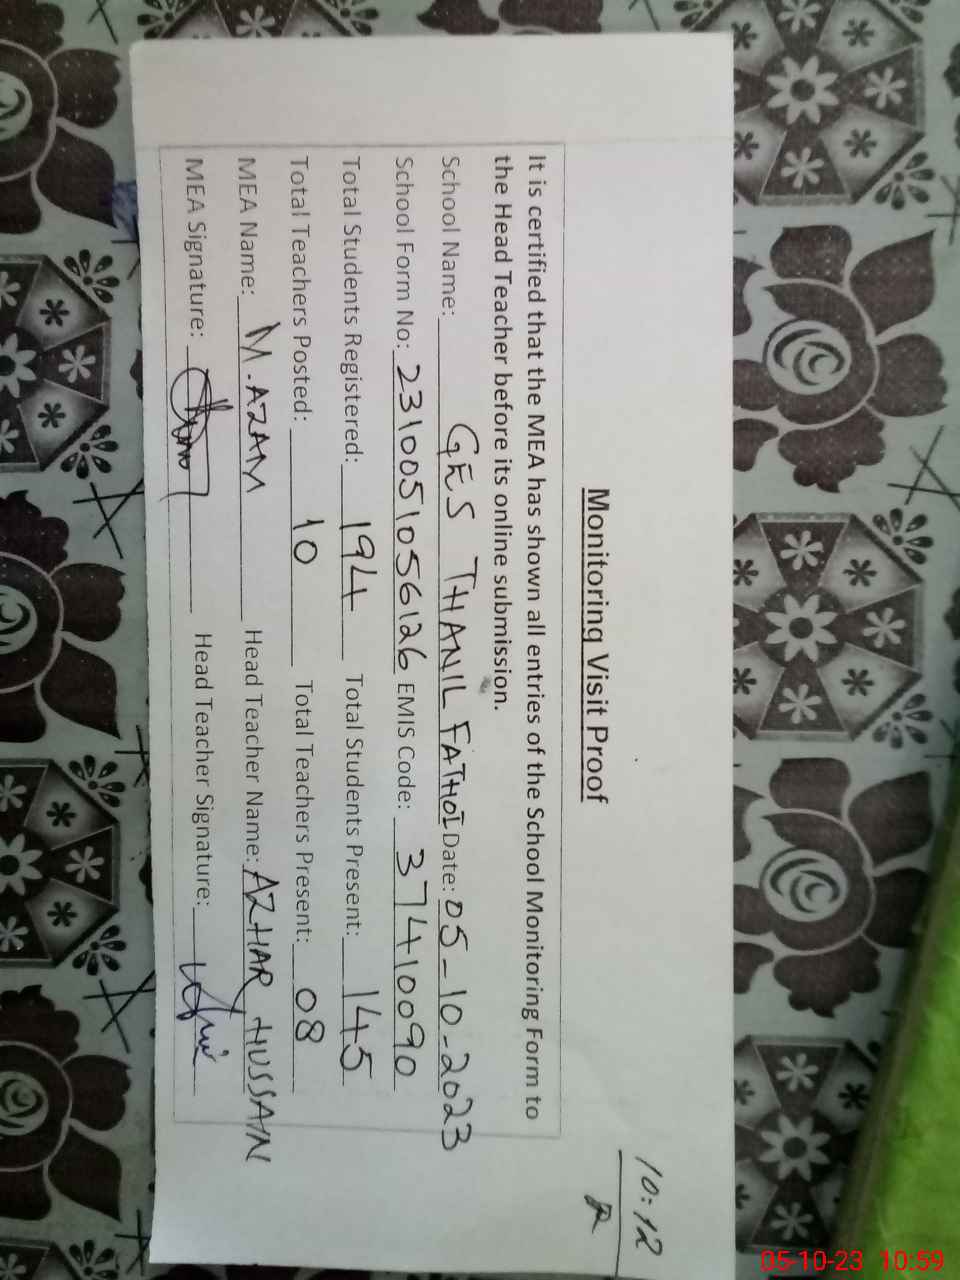 10:12
Monitoring Visit Proof
It is certified that the MEA has shown all entries of the School Monitoring Form to
the Head Teacher before its online submission.
School Name: GES THANIL FATHOI Date: 05-10-2023
School Form No: 2310051056126 EMIS Code: 37410090
Total Students Registered: 194 Total Students Present: 145
Total Teachers Posted: 10 Total Teachers Present: 08
MEA Name: M.AZAM Head Teacher Name: AZHAR HUSSAIN
MEA Signature: Head Teacher Signature:
05-10-23 10:59